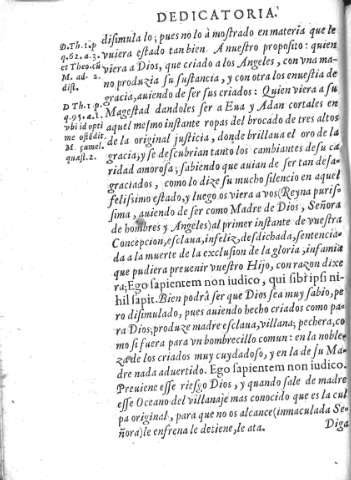 DEDICATORIA.
D. Th. 1. p
q. 62. a. 3.
et Theo. cũ
M. ad. 2.
dist.
D Th. 1. p.
q. 95. a. 1.
vbi id opti
me ostẽdit.
M. çumel.
quæst. 2.
disimula lo; pues no lo à mostrado en materia que le
vuiera estado tan bien. A nuestro proposito: quien
viera a Dios, que criado a los Angeles, con vna ma-
no produzia su sustancia, y con otra los enuestia de
gracia, auiendo de ser sus criados: Quien viera a su
Magestad dandoles ser a Eua y Adan cortales en
aquel mesmo instante ropas del brocado de tres altos
de la original justicia, donde brillaua el oro de la
gracia, y se descubrian tanto los cambiantes de su ca
ridad amorosa; sabiendo que auian de ser tan desa-
graciados, como lo dize su mucho silencio en aquel
felisimo estado, y luego os viera a vos (Reyna puris
sima, auiendo de ser como Madre de Dios, Señora
de hombres y Angeles) al primer instante de vuestra
Concepcion, esclaua, infeliz, desdichada, sentencia-
da a la muerte de la exclusion de la gloria, infamia
que pudiera preuenir vuestro Hijo, con razon dixe
ra; Ego sapientem non iudico, qui sibi ipsi ni-
hil sapit. Bien podrà ser que Dios sea muy sabio, pe
ro disimulado, pues auiendo hecho criados como pa-
ra Dios, produze madre esclaua, villana, pechera, co
mo si fuera para vn hombrecillo comun: en la noble
za de los criados muy cuydadoso, y en la de su Ma-
dre nada aduertido. Ego sapientem non iudico.
Preuiene esse riesgo Dios, y quando sale de madre
esse Oceano del villanaje mas conocido que es la cul
pa original, para que no os alcance (inmaculada Se-
ñora) le enfrena le deziene, le ata.
Diga